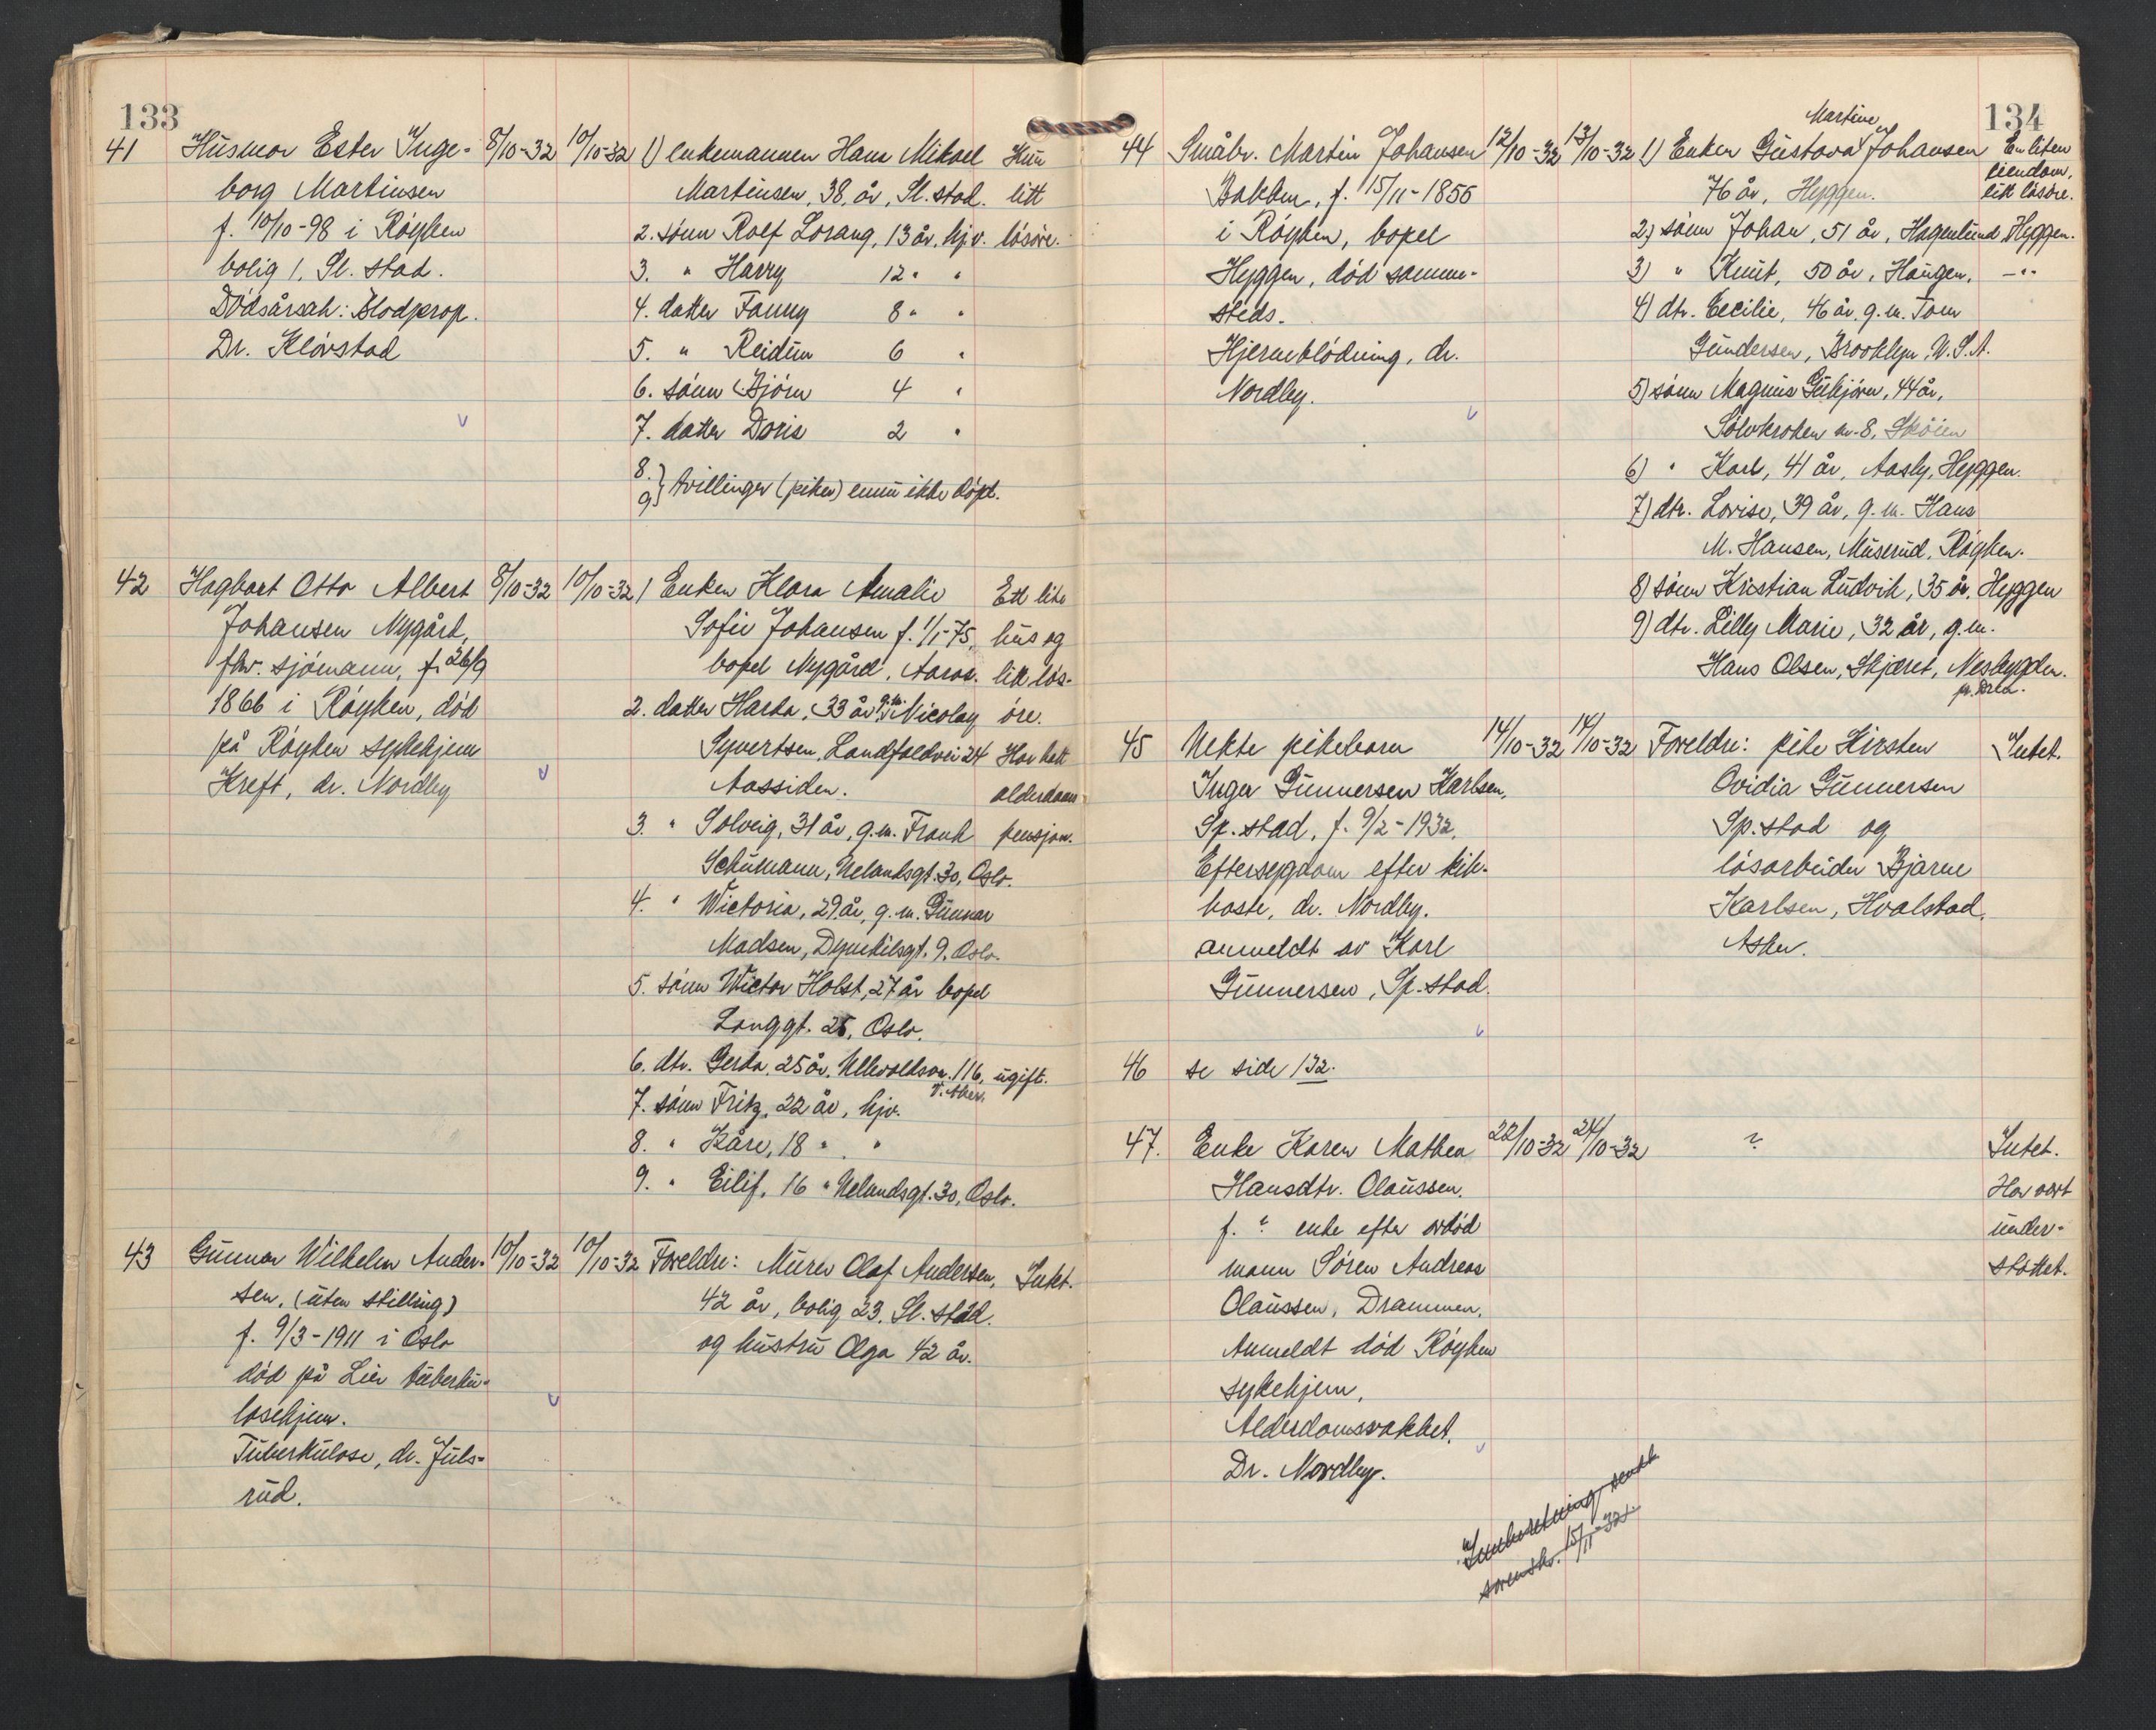 133
41 Husmor Ester Inge- 8/10-32 10/10-32 1) enkemannen Hans Mikael Kun
borg Martinsen Martinsen, 38 år, Sl. stad. litt
f. 10/10-98 i Röyken 2. sönn Rolf Lorang, 13 år, hjv. lösöre.
bolig 1. Sl. stad. 3. " Harry 12 " "
Dödsårsak: Blodprop. 4. datter Fanny 8 " "
Dr. Klövstad 5. " Reidun 6 "
6. sönn Björn 4 "
7. datter Doris 2 "
8.
9. } tvillinger (piker) ennu ikke döpt.
42 Hagbart Otto Albert 8/10-32 10/10-32 1 Enken Klara Amalie Ett lite
Johansen Nygård, Sofie Johansen f. 1/1-75, hus og
fhv. sjömann, f. 26/9 bopel Nygård, Aaros. litt lös-
1866 i Röyken, död 2. datter Harda, 33 år g.m. Nicolay öre.
på Röyken sykehjem Syvertsen, Landfaldvei 24 Har hatt
Kreft, dr. Nordby Aassiden. alderdoms-
3. " Solveig, 31 år, g.m. Frank pensjon.
Schumann, Uelandsgt. 30, Oslo.
4. " Wictoria, 29 år, g.m. Gunnar
Madsen, Dynekilsgt. 9. Oslo.
5. sönn Wictor Holst, 27 år bopel
Langgt. 25, Oslo.
6. dtr. Gerda, 25 år. Ullevoldsv. 116, ugift.
V. Aker.
7. sönn Fritz, 22 år, hjv.
8. " Kåre, 18 " "
9. " Eilif, 16 " Uelandsgt. 30, Oslo.
43 Gunnar Wilhelm Ander- 10/10-32 10/10-32 Foreldre: Murer Olaf Andersen, Intet.
sen, (uten stilling) 42 år, bolig 23. Sl. stad.
f. 9/3-1911 i Oslo og hustru Olga 42 år.
död på Lier tuberku-
losehjem.
Tuberkulose, dr. Juls-
rud.
134
Martine
44 Småbr. Martin Johansen 12/10-32 13/10-32 1) Enken Gustava Johansen En liten
Bakken, f. 15/11-1855 76 år, Hyggen. eiendom, litt lösöre.
i Röyken, bopel 2) sönn Johan, 51 år, Hagenlund Hyggen.
Hyggen, död samme- 3) " Knut, 50 år, Haugen, -"-
steds. 4) dtr. Cecilie, 46 år, g.m. Tom
Hjerneblödning, dr. Gundersen, Brooklyn, U.S.A.
Nordby. 5) sönn Magnus Gubjörn, 44 år,
Sölvkroken nr. 8, Sköien
6) " Karl, 41 år, Aasly, Hyggen.
7) dtr. Lovise, 39 år, g.m. Hans
M. Hansen, Muserud, Röyken.
8) sönn Kristian Ludvik, 35 år, Hyggen
9) dtr. Lilly Marie, 32 år, g.m.
Hans Olsen, Skjæret, Nesbygden.
pr. Drn.
45 Uekte pikebarn 14/10-32 14/10-32 Foreldre: pike Kirsten Intet.
Inger Gunnersen Karlsen, Ovidia Gunnersen
Sp. stad, f. 9/2-1932. Sp. stad og
Eftersygdom efter kik- lösarbeider Bjarne
hoste, dr. Nordby. Karlsen, Hvalstad,
anmeldt av Karl Asker.
Gunnersen, Sp. stad.
46 se side 132.
47. Enke Karen Mathea 22/10-32 24/10-32 ? Intet.
Hansdtr. Claussen. Har vært
f. ? enke efter avdöd under-
mann Sören Andreas stöttet.
Claussen, Drammen.
Anmeldt död Röyken
sykehjem,
Alderdomssvakhet.
Dr. Nordby.
Innberetning sendt
sorenskr. 15/11-32